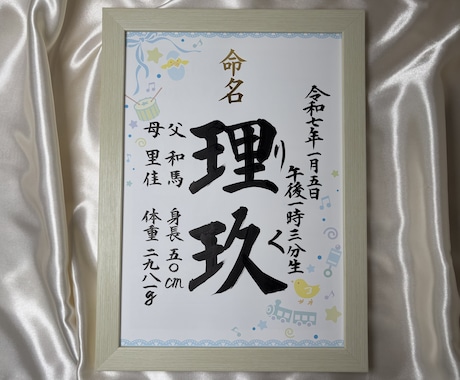 命名
令和七年一月五日
午後一時三分生
理玖
りく
父 和馬
母 里佳
身長 五〇cm
体重 二九八一g